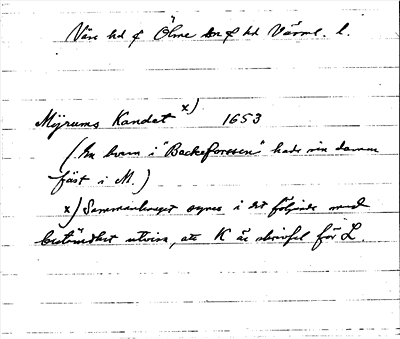 Väse hd f Ölme sn f hd Värml. l.
Mijrums Kandet x) 1653
(En kvarn i "Backeforssen" hade sin damm
fäst i M.)
x) Sammanhanget synes i det följande med
bestämdhet utvisa, att K är skrivfel för L.